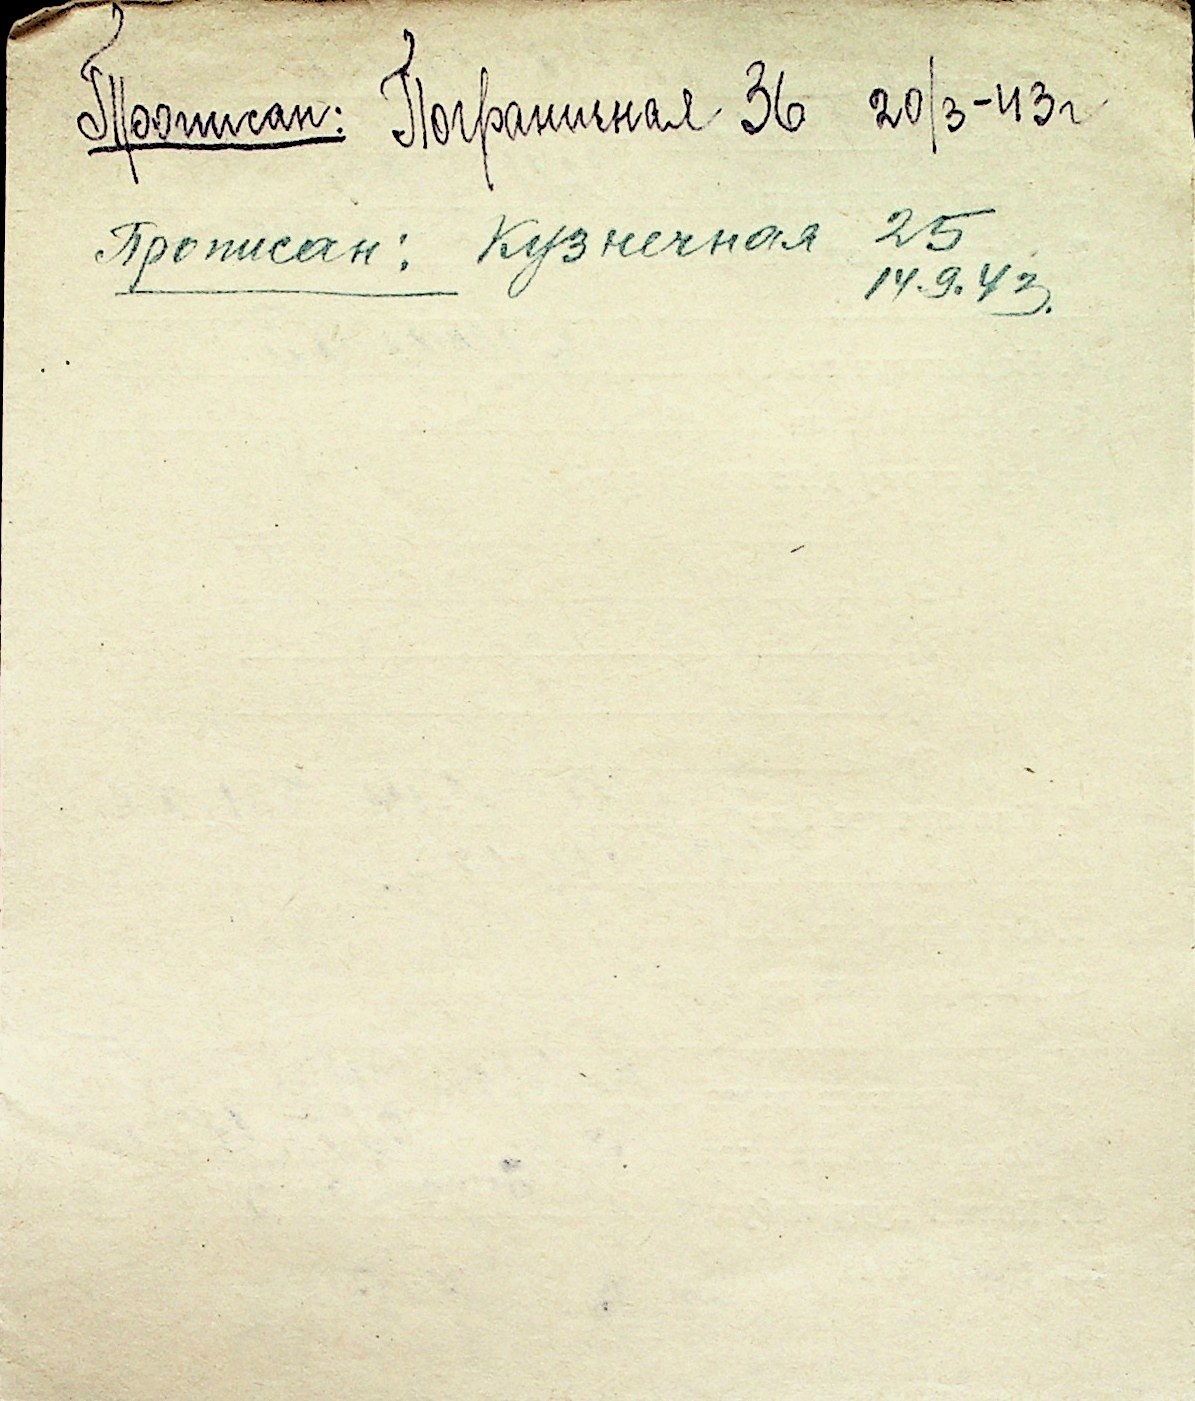 Прописан: Пограничная 36 20/3-43г
Прописан: Кузнечная 25
14.9.43.